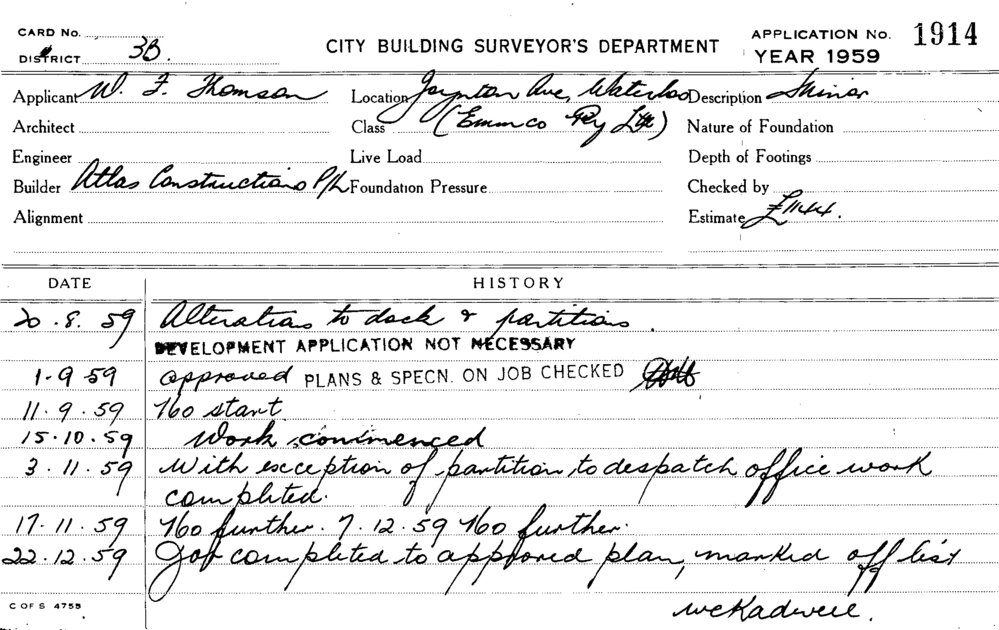 CARD No.
DISTRICT 3B.
CITY BUILDING SURVEYOR'S DEPARTMENT
APPLICATION No. 1914
YEAR 1959
Applicant W. F. Thomson Location Joynton Ave, Waterloo Description Minor
Architect Class (Emmco Pty Ltd) Nature of Foundation
Engineer Live Load Depth of Footings
Builder Atlas Constructions P/L Foundation Pressure Checked by
Alignment Estimate £1144.
DATE HISTORY
20.8.59 Alterations to dock & partitions.
DEVELOPMENT APPLICATION NOT NECESSARY
1-9 59 approved PLANS & SPECN. ON JOB CHECKED
11.9.59 No start
15.10.59 Work commenced
3.11.59 With exception of partition to despatch office work
completed.
17.11.59 No further. 7.12.59 No further.
22.12.59 Job completed to approved plan, marked off list
C OF S 4755